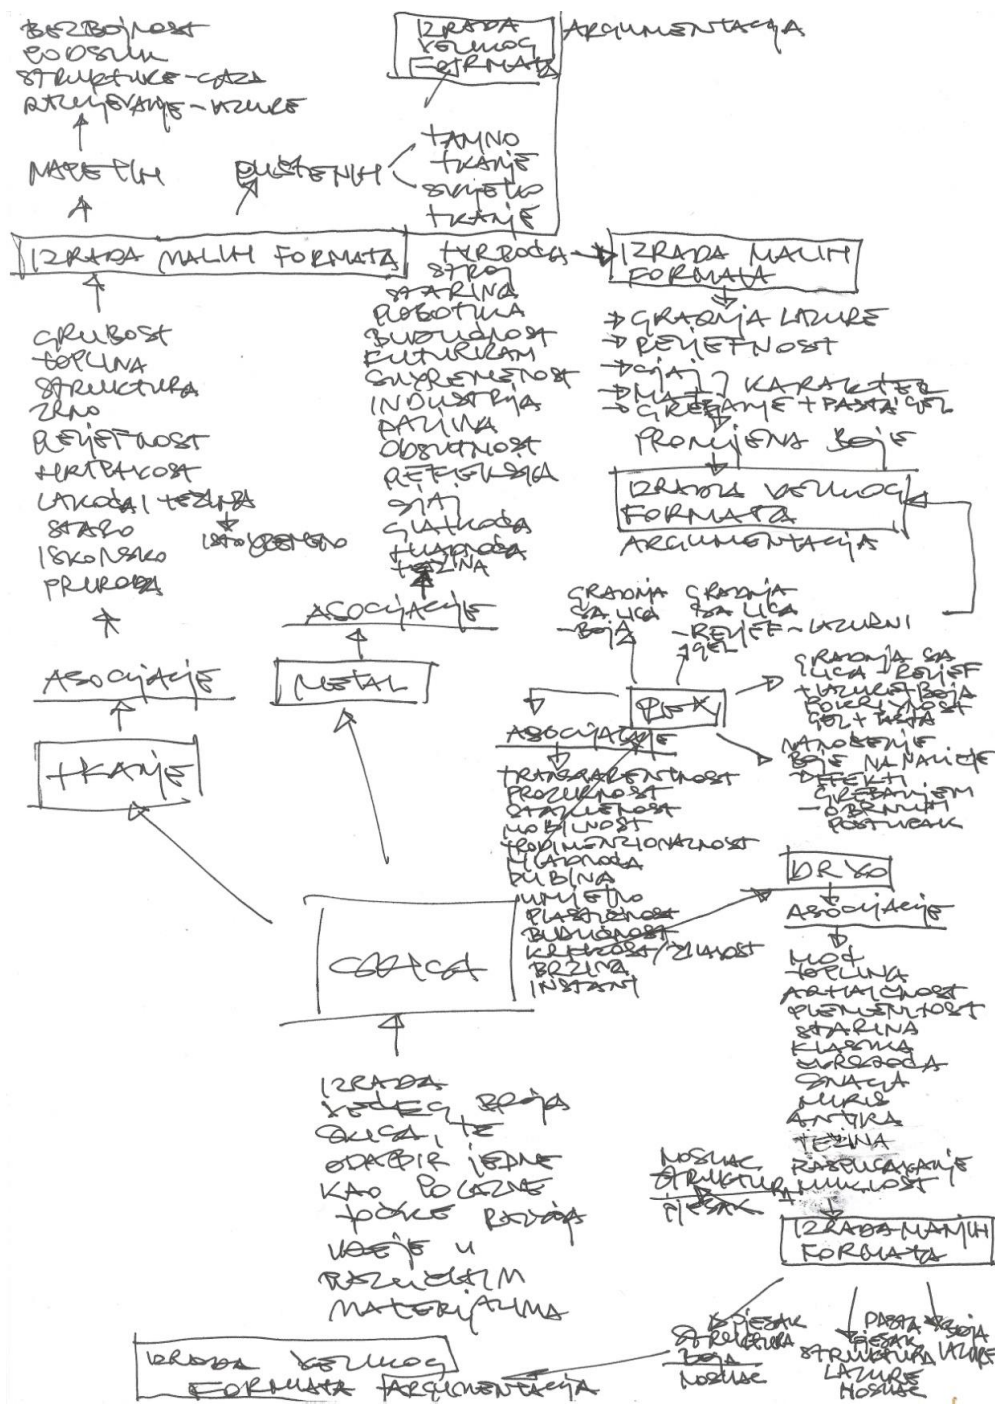 BEZBOJNOST
PODSLIK
STRUKTURE - GAZA
RAZLIJEVANJE - LAZURE
NAPETIH
IZRADA
VELIKOG
FORMATA
ARGUMENTACIJA
PUŠTENIH
TAMNO
TKANJE
SVIJETLO
TKANJE
IZRADA MALIH FORMATA
GRUBOST
TOPLINA
STRUKTURA
ZRNO
RELJEFNOST
HRAPAVOST
LAKOĆA I TEŽINA
ISTOVREMENO
STARO
ISKONSKO
PRIRODA
ASOCIJACIJE
TKANJE
TVRDOĆA
STROJ
STARINA
ROBOTIKA
BUDUĆNOST
FUTURIZAM
SUVREMENOST
INDUSTRIJA
DALJINA
OBSUTNOST
REFLEKSIJA
SJAJ
GLATKOĆA
HLADNOĆA
TEŽINA
ASOCIJACIJE
METAL
IZRADA MALIH
FORMATA
GRADNJA LAZURE
RELJEFNOST
SJAJ
MAT
KARAKTER
GREBANJE + PASTA GEL
PROMJENA BOJE
IZRADA VELIKOG
FORMATA
ARGUMENTACIJA
GRADNJA
SA LICA
- BOJA
GRADNJA
SA LICA
- RELJEF - LAZURNI
GEL
PLEXI
GRADNJA SA
LICA - RELJEF
+ LAZURE + BOJA
POKRIVNOST
GEL + PASTA
NANOŠENJE
BOJE NA NALIČJE
- DEFEKTI
GREBANJEM
- OBRNUTI
POSTUPAK
ASOCIJACIJE
TRANSPARENTNOST
PROZIRNOST
STAKLENOST
MOBILNOST
TRODIMENZIONALNOST
HLADNOĆA
DUBINA
UMJETNO
PLASTIČNOST
BUDUĆNOST
KRHKOST/ŽILAVOST
BRZINA
INSTANT
DRVO
ASOCIJACIJE
MOĆ
TOPLINA
ARHAIČNOST
PLEMENITOST
STARINA
KLASIKA
SNAGA
MIRIS
ANTIKA
TEŽINA
RASPUCAVANJE
MUKLOST
NOSILAC
STRUKTURA
PIJESAK
IZRADA MANJIH
FORMATA
SKICA
IZRADA
VEĆEG BROJA
SKICA, TE
ODABIR JEDNE
KAO POLAZNE
TOČKE RAZVOJA
IDEJE U
RAZLIČITIM
MATERIJALIMA
PIJESAK
STRUKTURA
BOJA
NOSILAC
PASTA
PIJESAK
STRUKTURA
LAZURE
NOSILAC
BOJA
LAZURE
IZRADA VELIKOG
FORMATA ARGUMENTACIJA